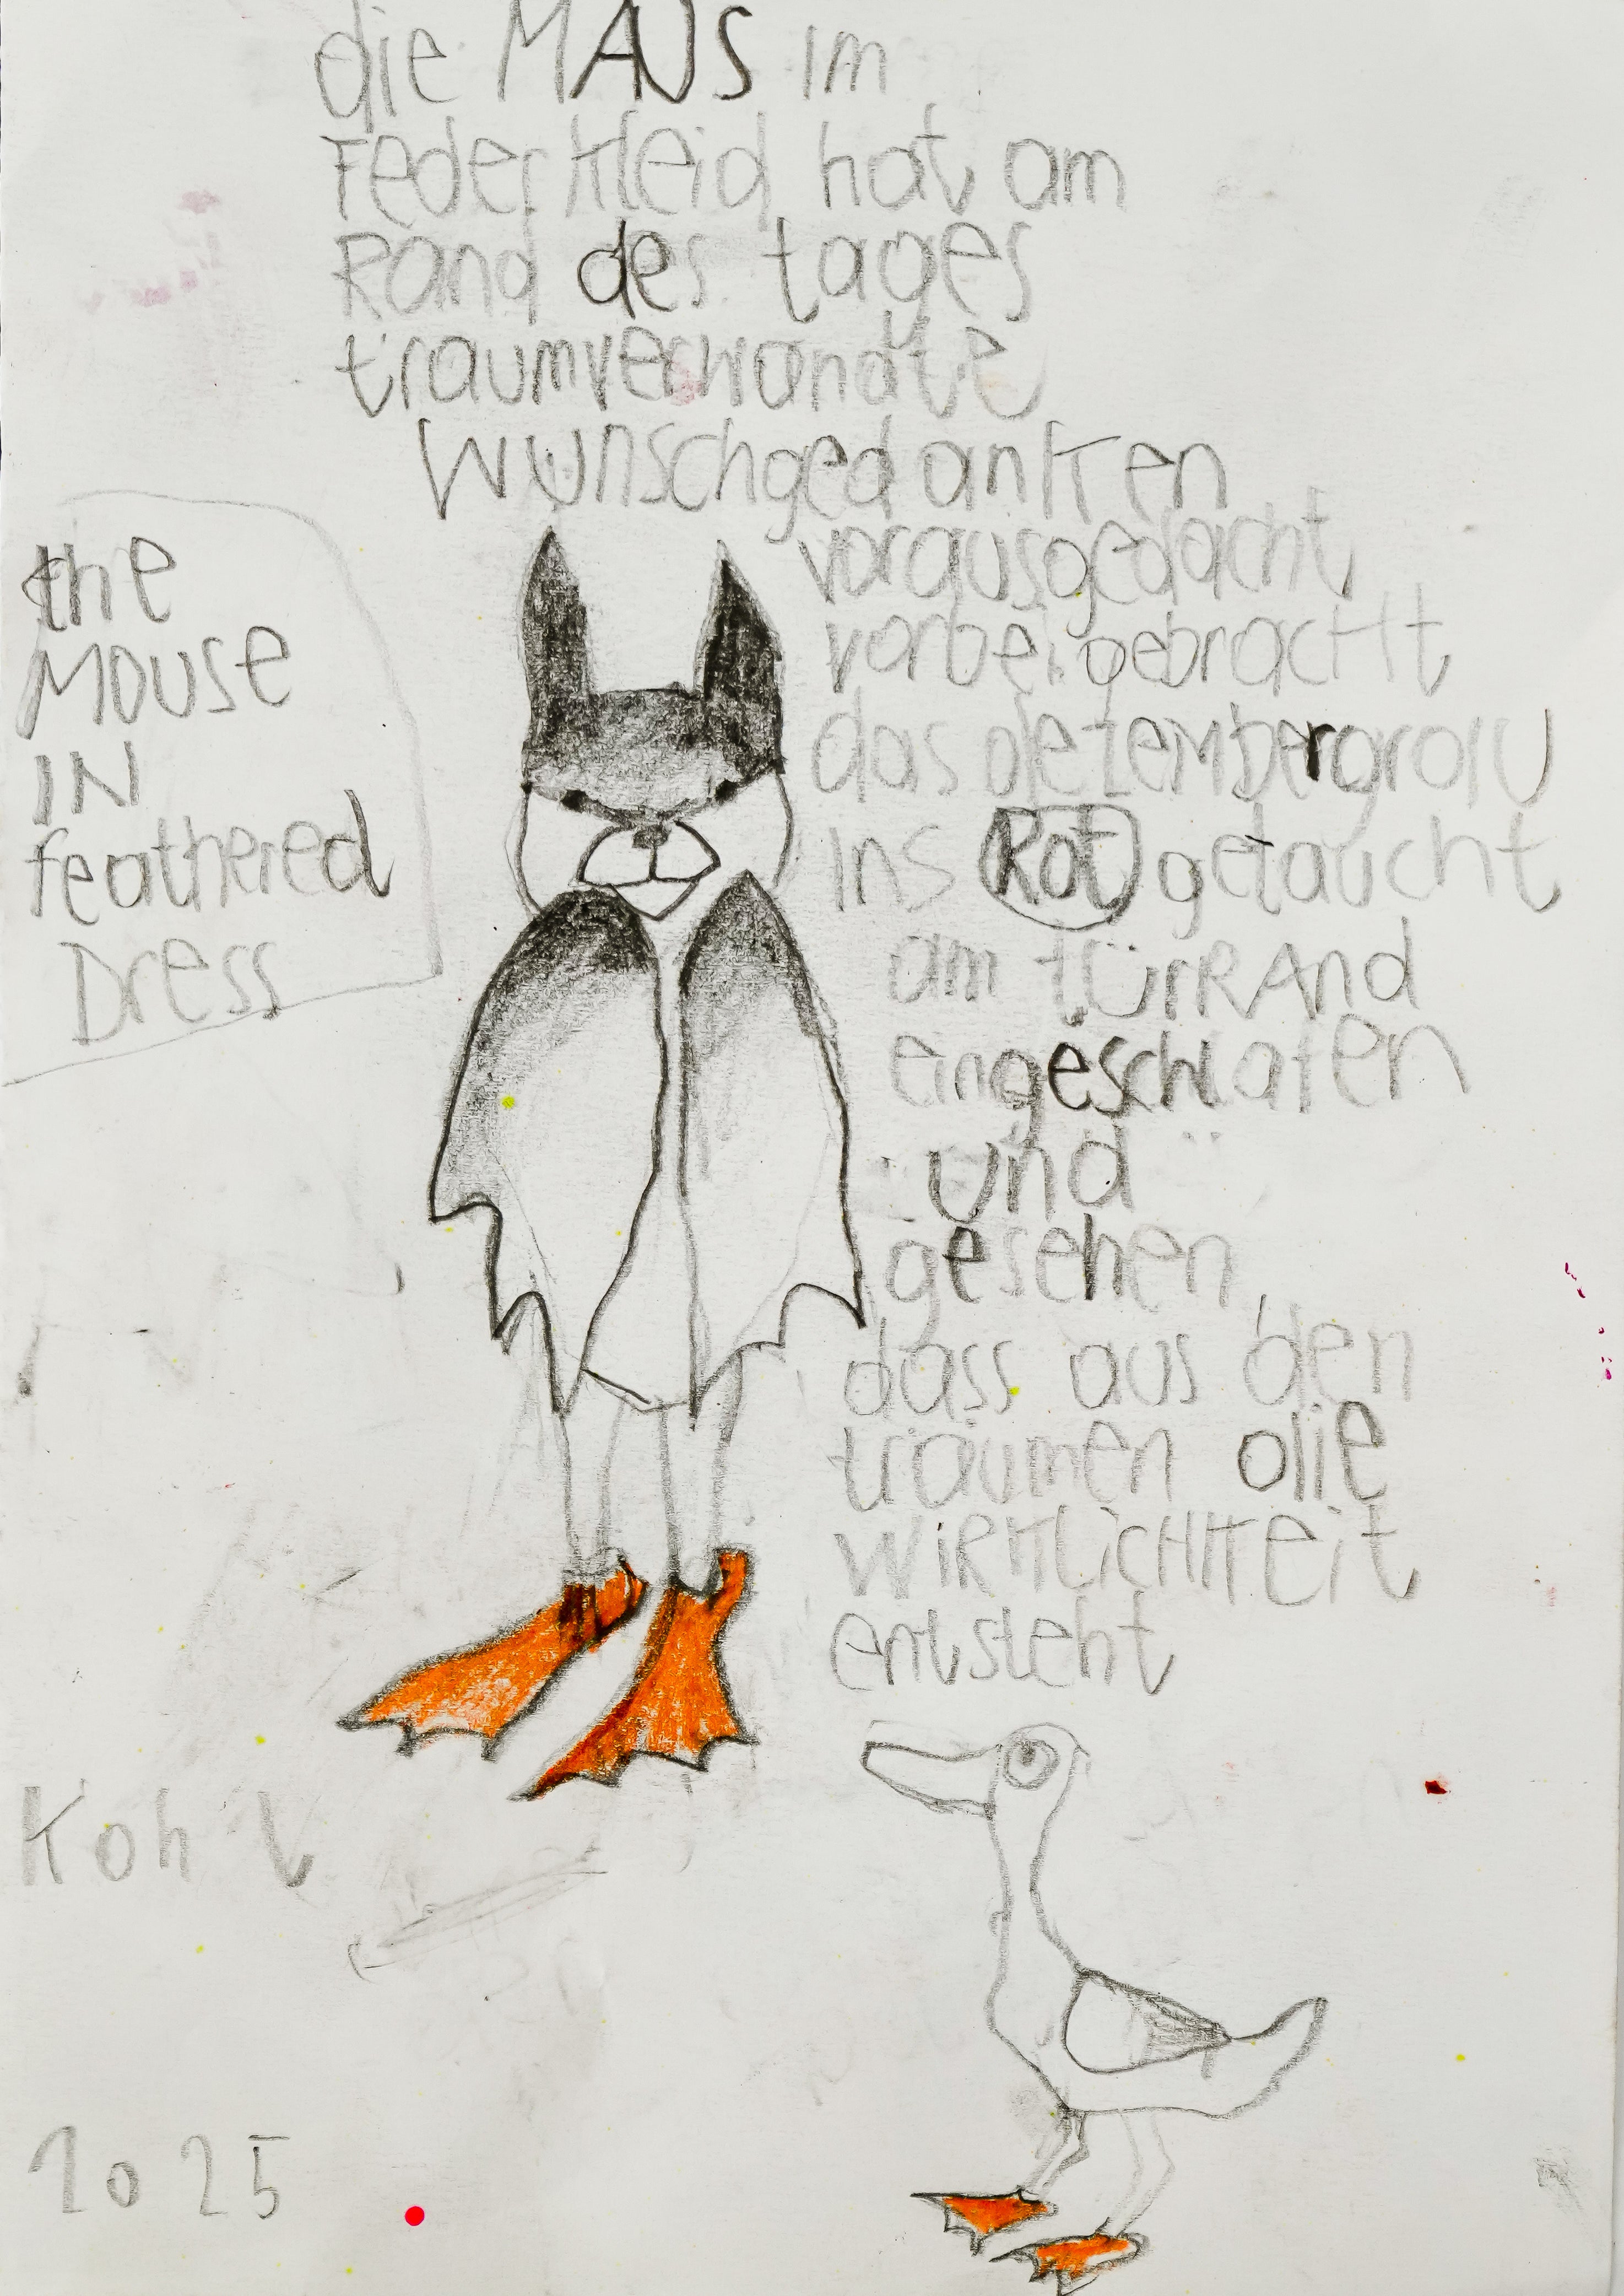 die MAUS im
Federkleid hat am
Rand des tages
traumverwandte
Wunschgedanken
vorausgedacht
vorbeigebracht
das dezembergrau
ins Rot getaucht
am tÜrRAnd
eingeschlafen
und
gesehen,
dass aus den
träumen die
WiRKLiCHKeit
entsteht
the
Mouse
IN
feathered
Dress
Koh